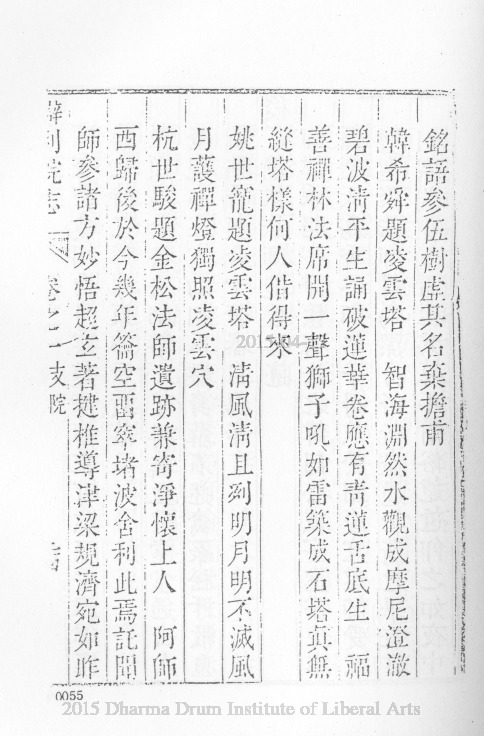 銘語參伍樹虛其名棄擔甫
韓希舜題凌雲塔　智海淵然水觀成摩尼澄澈
碧波清平生誦破蓮華卷應有青蓮舌底生　福
善禪林法席開一聲獅子吼如雷築成石塔真無
縫塔樣何人偕得來
姚世寵題凌雲塔　清風清且冽明月明不滅風
月護禪燈獨照凌雲穴
杭世駿題金松法師遺跡兼寄淨懷上人　阿師
西歸後於今幾年籥空畱窣堵波舍利此焉託聞
師參諸方妙悟超玄著揵椎導津梁規濟宛如昨
辯利院志　卷之一　支院
0055
2015 Dharma Drum Institute of Liberal Arts